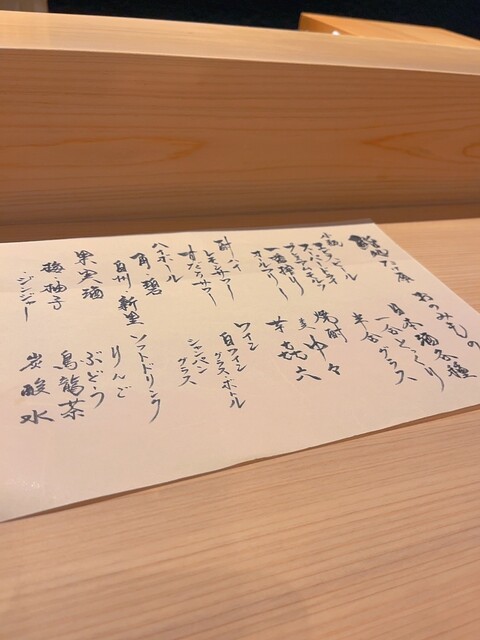 鮨
おのみもの
日本酒各種
一合とっくり
半合グラス
小瓶ビール
エビス
スーパードライ
プレミアムモルツ
一番搾り
オールフリー
焼酎
麦 ゆめ
芋 㐂六
酎ハイ
レモンサワー
すだちサワー
ワイン
白ワイン
グラス・ボトル
シャンパン
グラス
ハイボール
角・碧
白州・新里
ソフトドリンク
りんご
ぶどう
烏龍茶
炭酸水
果実酒
梅・柚子
・ジンジャー